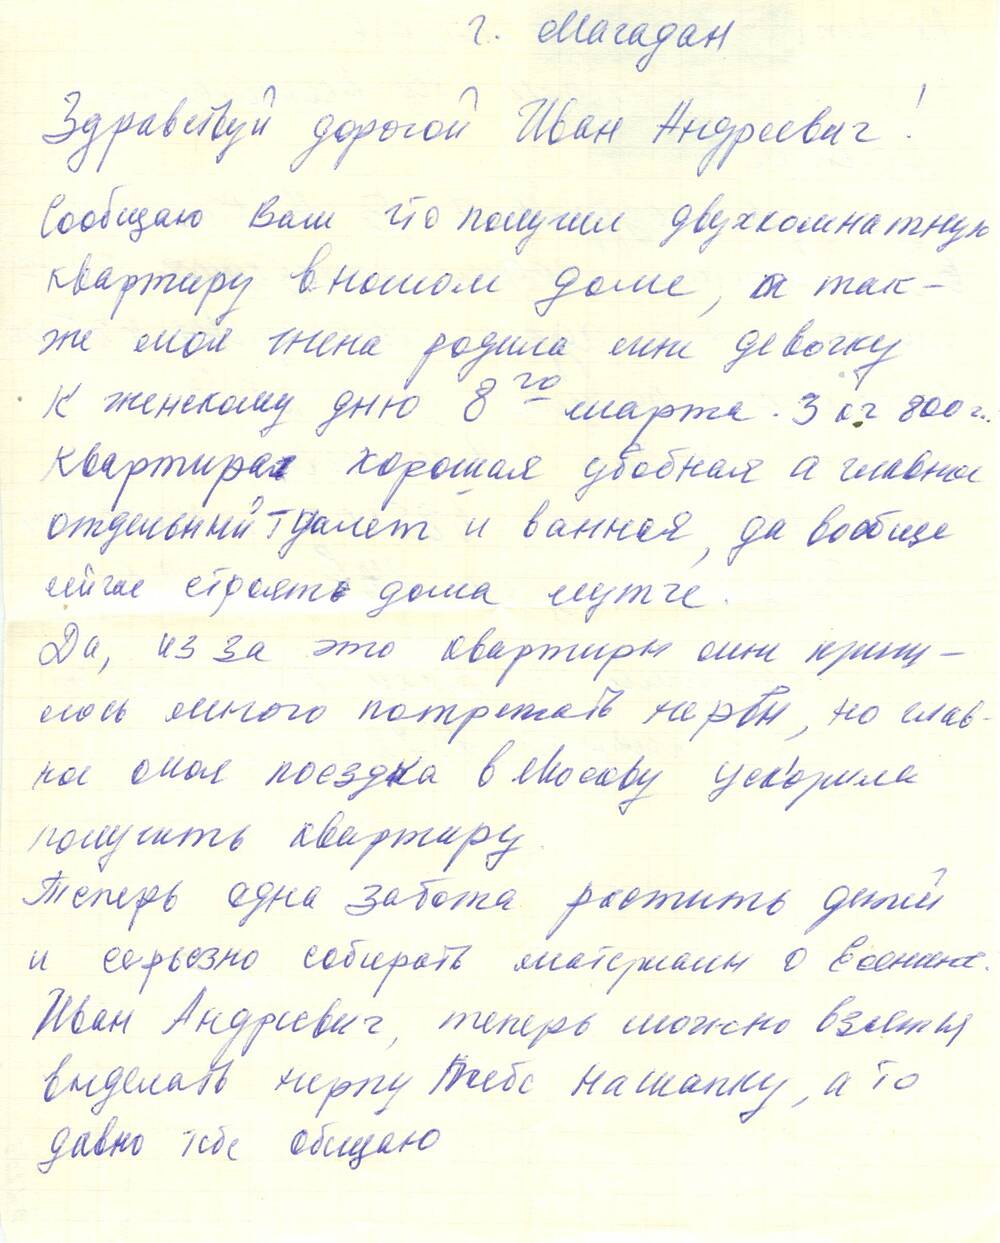 г. Магадан
Здравствуй дорогой Иван Андреевич!
Сообщаю Вам что получил двухкомнатную
квартиру в новом доме, а так-
же моя жена родила мне девочку
К женскому дню 8го марта. 3 кг 800 г.
Квартира хорошая удобная а главное
отдельный туалет и ванная, да вообще
сейчас строят дома лутче.
Да, из за это квартиры мне приш-
лось много потрепать нервы, но глав-
ное моя поездка в Москву ускорила
получить квартиру.
Теперь одна забота растить детей
и серьезно собирать материалы о Есенине.
Иван Андреевич, теперь можно взяться
выделать нерпу тебе на шапку, а то
давно тебе обещаю